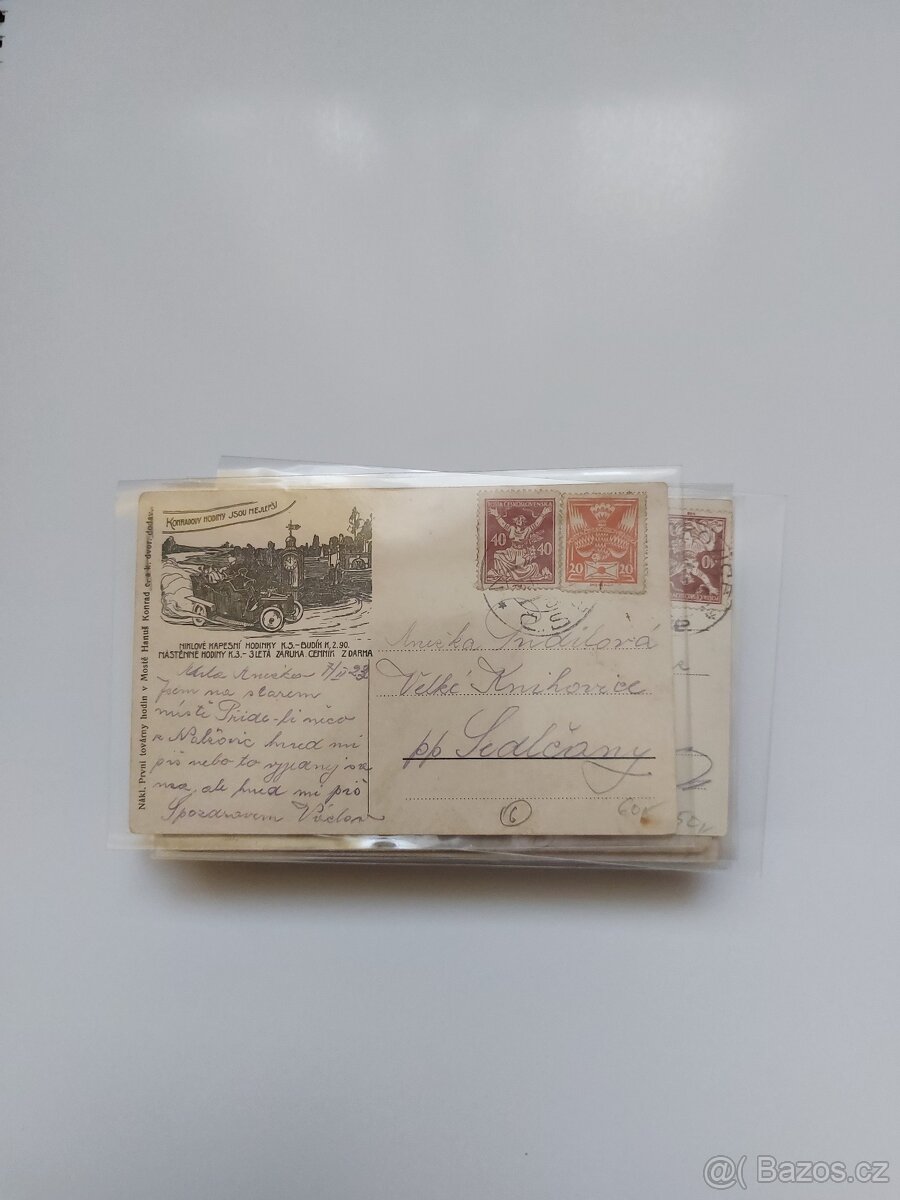 KONRADOVY HODINY JSOU NEJLEPŠÍ
NIKLOVÉ KAPESNÍ HODINKY K.5.- BUDÍK K, 2.90.
NÁSTĚNNÉ HODINY K.3.- 3 LETÁ ZÁRUKA. CENNÍK ZDARMA
Nákl. První továrny hodin v Mostě Hanuš Konrad c. a k. dvor. dodav.
Milá Anežko 7/II-23
jsem na starém
místě Přide-li něco
z Nalžovic hned mi
piš nebo to vyjednej
ale hned mi piš
S pozdravem Václav
40 40
20 20
Anežka
Velké Knihovice
pp Sedlčany
6
60,-
40
@( Bazos.cz